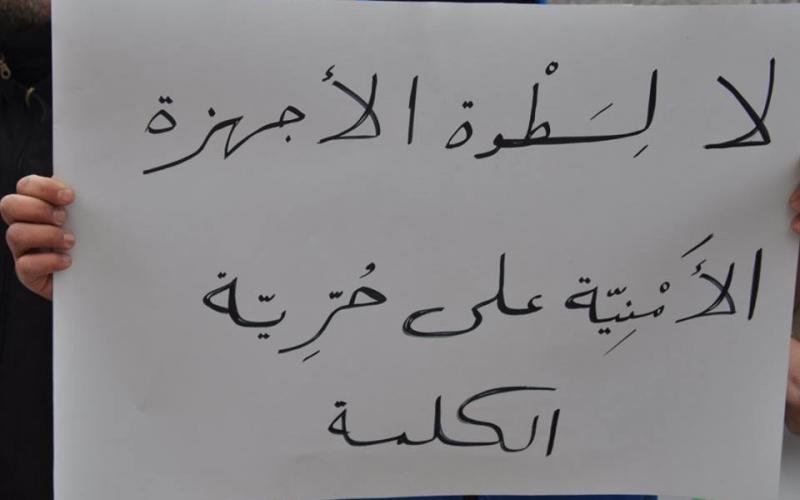 لا لِسَطْوة الأجهزة
الأَمْنِيّة على حُرِّيّة
الكلمة